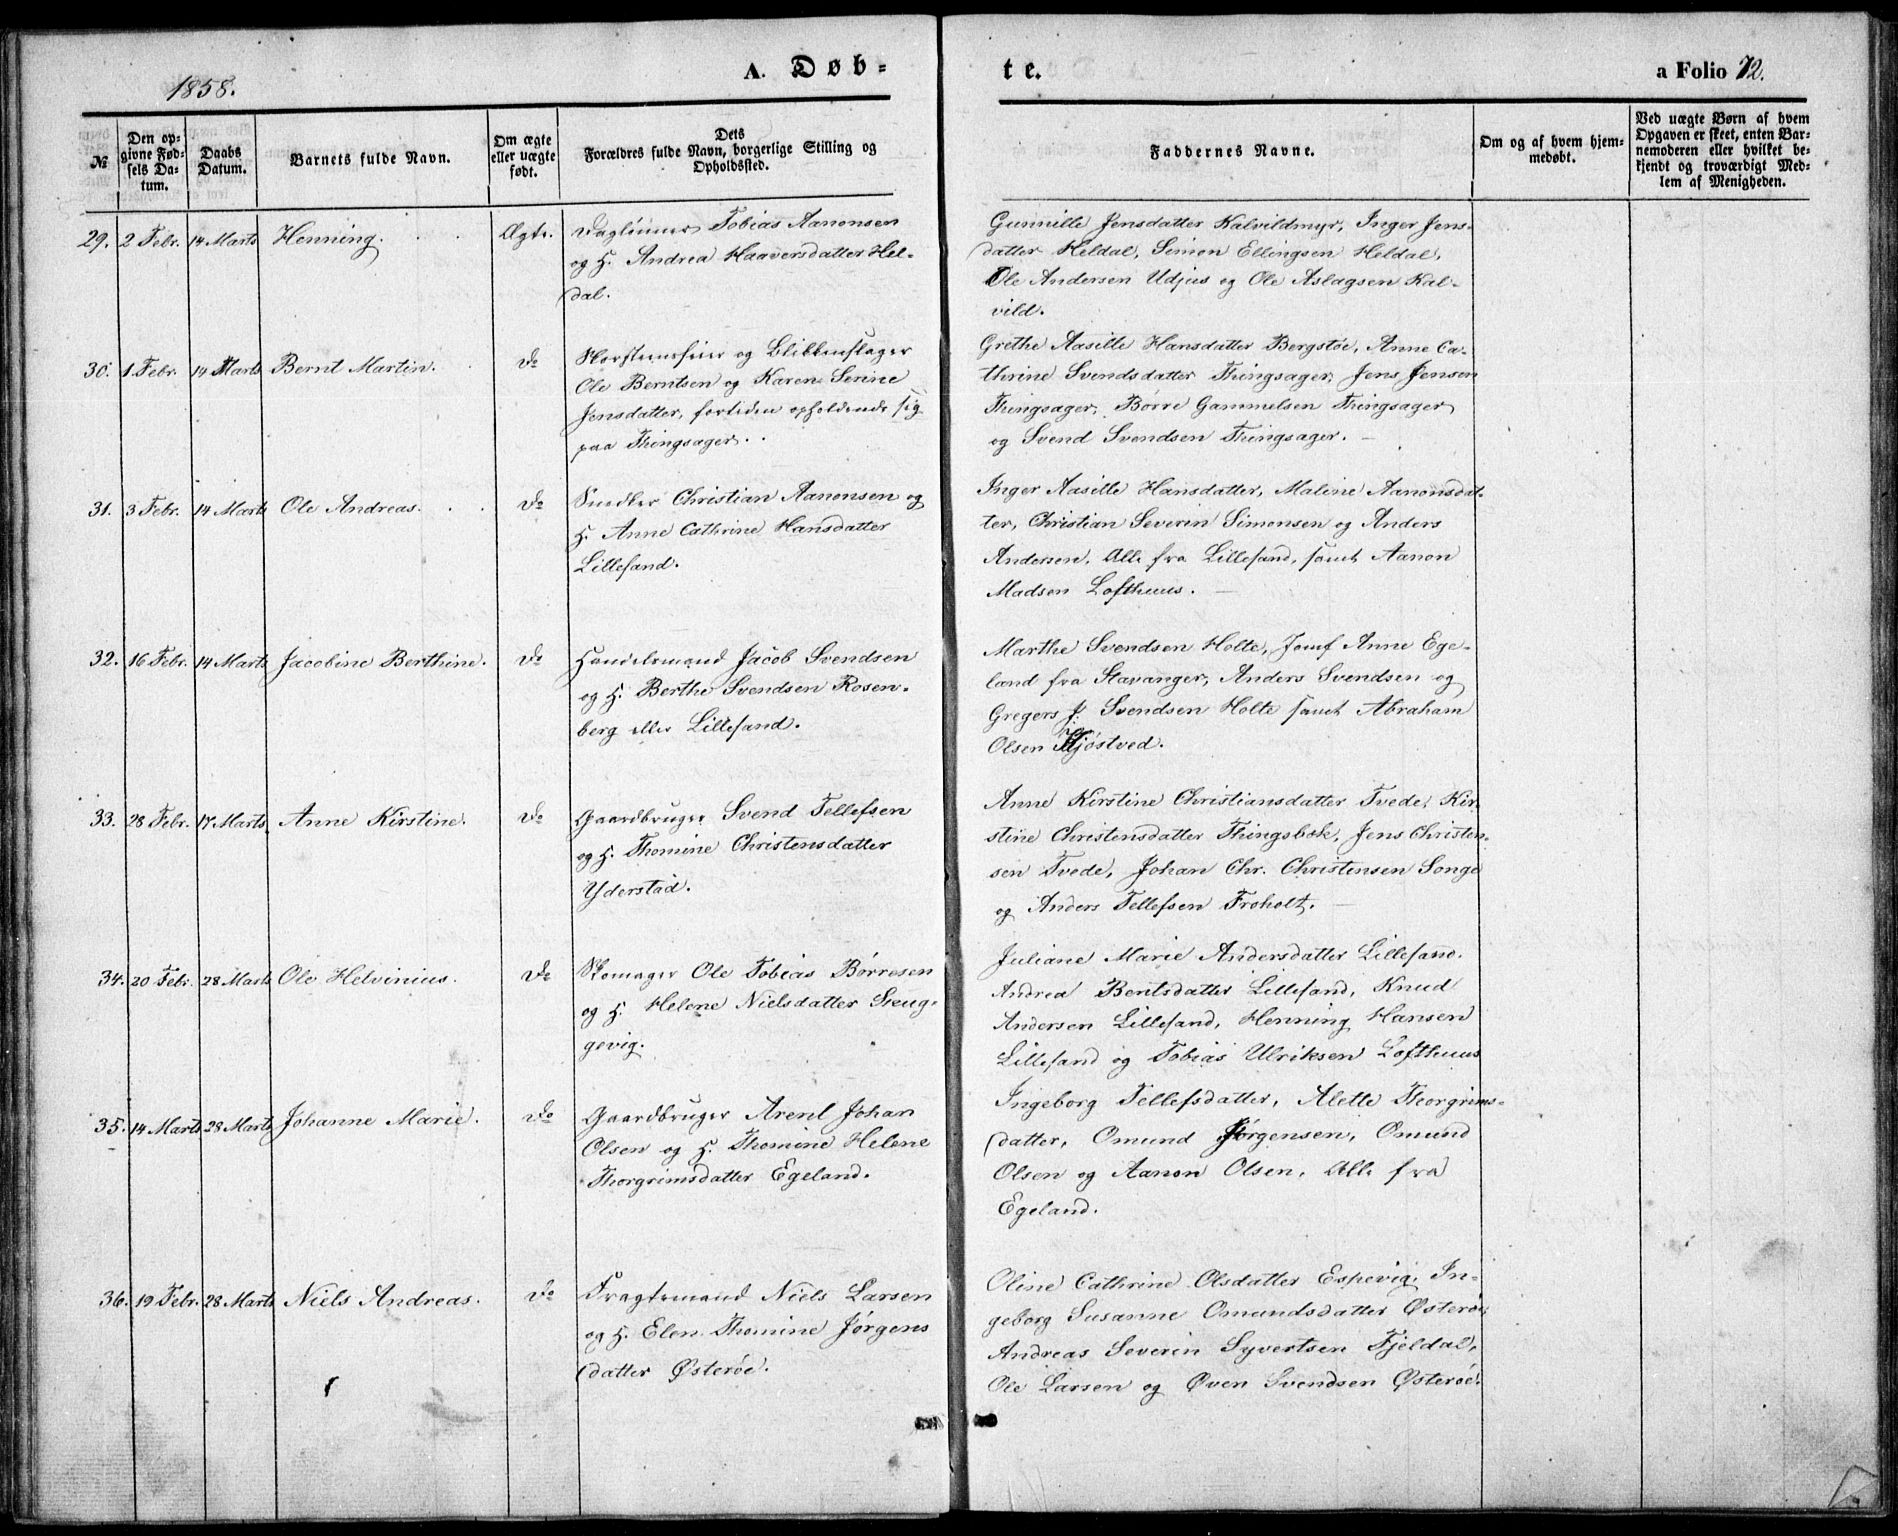 1858.
A. Døb-
te.
a Folio 72.
№
Den op-
givne Fød-
sels Da-
tum.
Daabs
Datum.
Barnets fulde Navn.
Om ægte
eller uægte
født.
Dets
Forældres fulde Navn, borgerlige Stilling og
Opholdssted.
Faddernes Navne.
Om og af hvem hjem-
medøbt.
Ved uægte Børn af hvem
Opgaven er skeet, enten Bar-
nemoderen eller hvilket be-
kjendt og troværdigt Med-
lem af Menigheden.
29. 2 Febr. 14 Marts Henning. Ægte. Daglönner Tobias Aanonsen
og H. Andrea Haaversdatter Hel-
dal.
Gunnille Jensdatter Kalvildmyr, Inger Jens-
datter Heldal, Simon Ellingsen Heldal,
Ole Andersen Udjus og Ole Aslagsen Kal-
vild.
30. 1 Febr. 14 Marts Bernt Martin. Do Skorsteensfeier og Blikkenslager
Ole Berntsen og Karen Serine
Jensdatter, fortiden opholdende sig
paa Thingsager.
Grethe Aasille Hansdatter Bergstøe, Anne Ca-
thrine Svendsdatter Thingsager, Jens Jensen
Thingsager, Børre Gammelsen Thingsager
og Svend Svendsen Thingsager.
31. 3 Febr. 14 Marts Ole Andreas. Do Snedker Christian Aanonsen og
H. Anne Cathrine Hansdatter
Lillesand.
Inger Aasille Hansdatter, Maline Aanonsdat-
ter, Christian Severin Simonsen og Anders
Andersen, Alle fra Lillesand, samt Aanon
Madsen Lofthuus.
32. 16 Febr. 14 Marts Jacobine Berthine. Do Handelsmand Jacob Svendsen
og H. Berthe Svendsen Rosen-
berg eller Lillesand.
Marthe Svendsen Holte, Jomf Anne Ege-
land fra Stavanger, Anders Svendsen og
Gregers J. Svendsen Holte samt Abraham
Olsen Tjöstved.
33. 28 Febr. 17 Marts Anne Kirstine. Do Gaardbruger Svend Tellefsen
og H. Thomine Christensdatter
Yderstad.
Anne Kirstine Christiansdatter Tvede, Kir-
stine Christensdatter Thingsbek, Jens Christen-
sen Tvede, Johan Chr. Christensen Songe
og Anders Tellefsen Froholt.
34. 20 Febr. 28 Marts Ole Helvinius. Do Skomager Ole Tobias Börresen
og H. Helene Nielsdatter Skug-
gevig.
Juliane Marie Andersdatter Lillesand.
Andrea Bentsdatter Lillesand, Knud
Andersen Lillesand, Henning Hansen
Lillesand og Tobias Ulriksen Lofthuus
35. 14 Marts 28 Marts Johanne Marie. Do Gaardbruger Arent Johan
Olsen og H. Thomine Helene
Thorgrimsdatter Egeland.
Ingeborg Tellefsdatter, Alette Thorgrims-
datter, Omund Jörgensen, Omund
Olsen og Aanon Olsen, Alle fra
Egeland.
36. 19 Febr. 28 Marts Niels Andreas. Do Fragtemand Niels Larsen
og H. Elen Thomine Jørgens
datter Østerøe.
Oline Cathrine Olsdatter Espevig, In-
geborg Susanne Omundsdatter Østerøe,
Andreas Severin Syvertsen Fjeldal,
Ole Larsen og Øven Svendsen Østerøe.